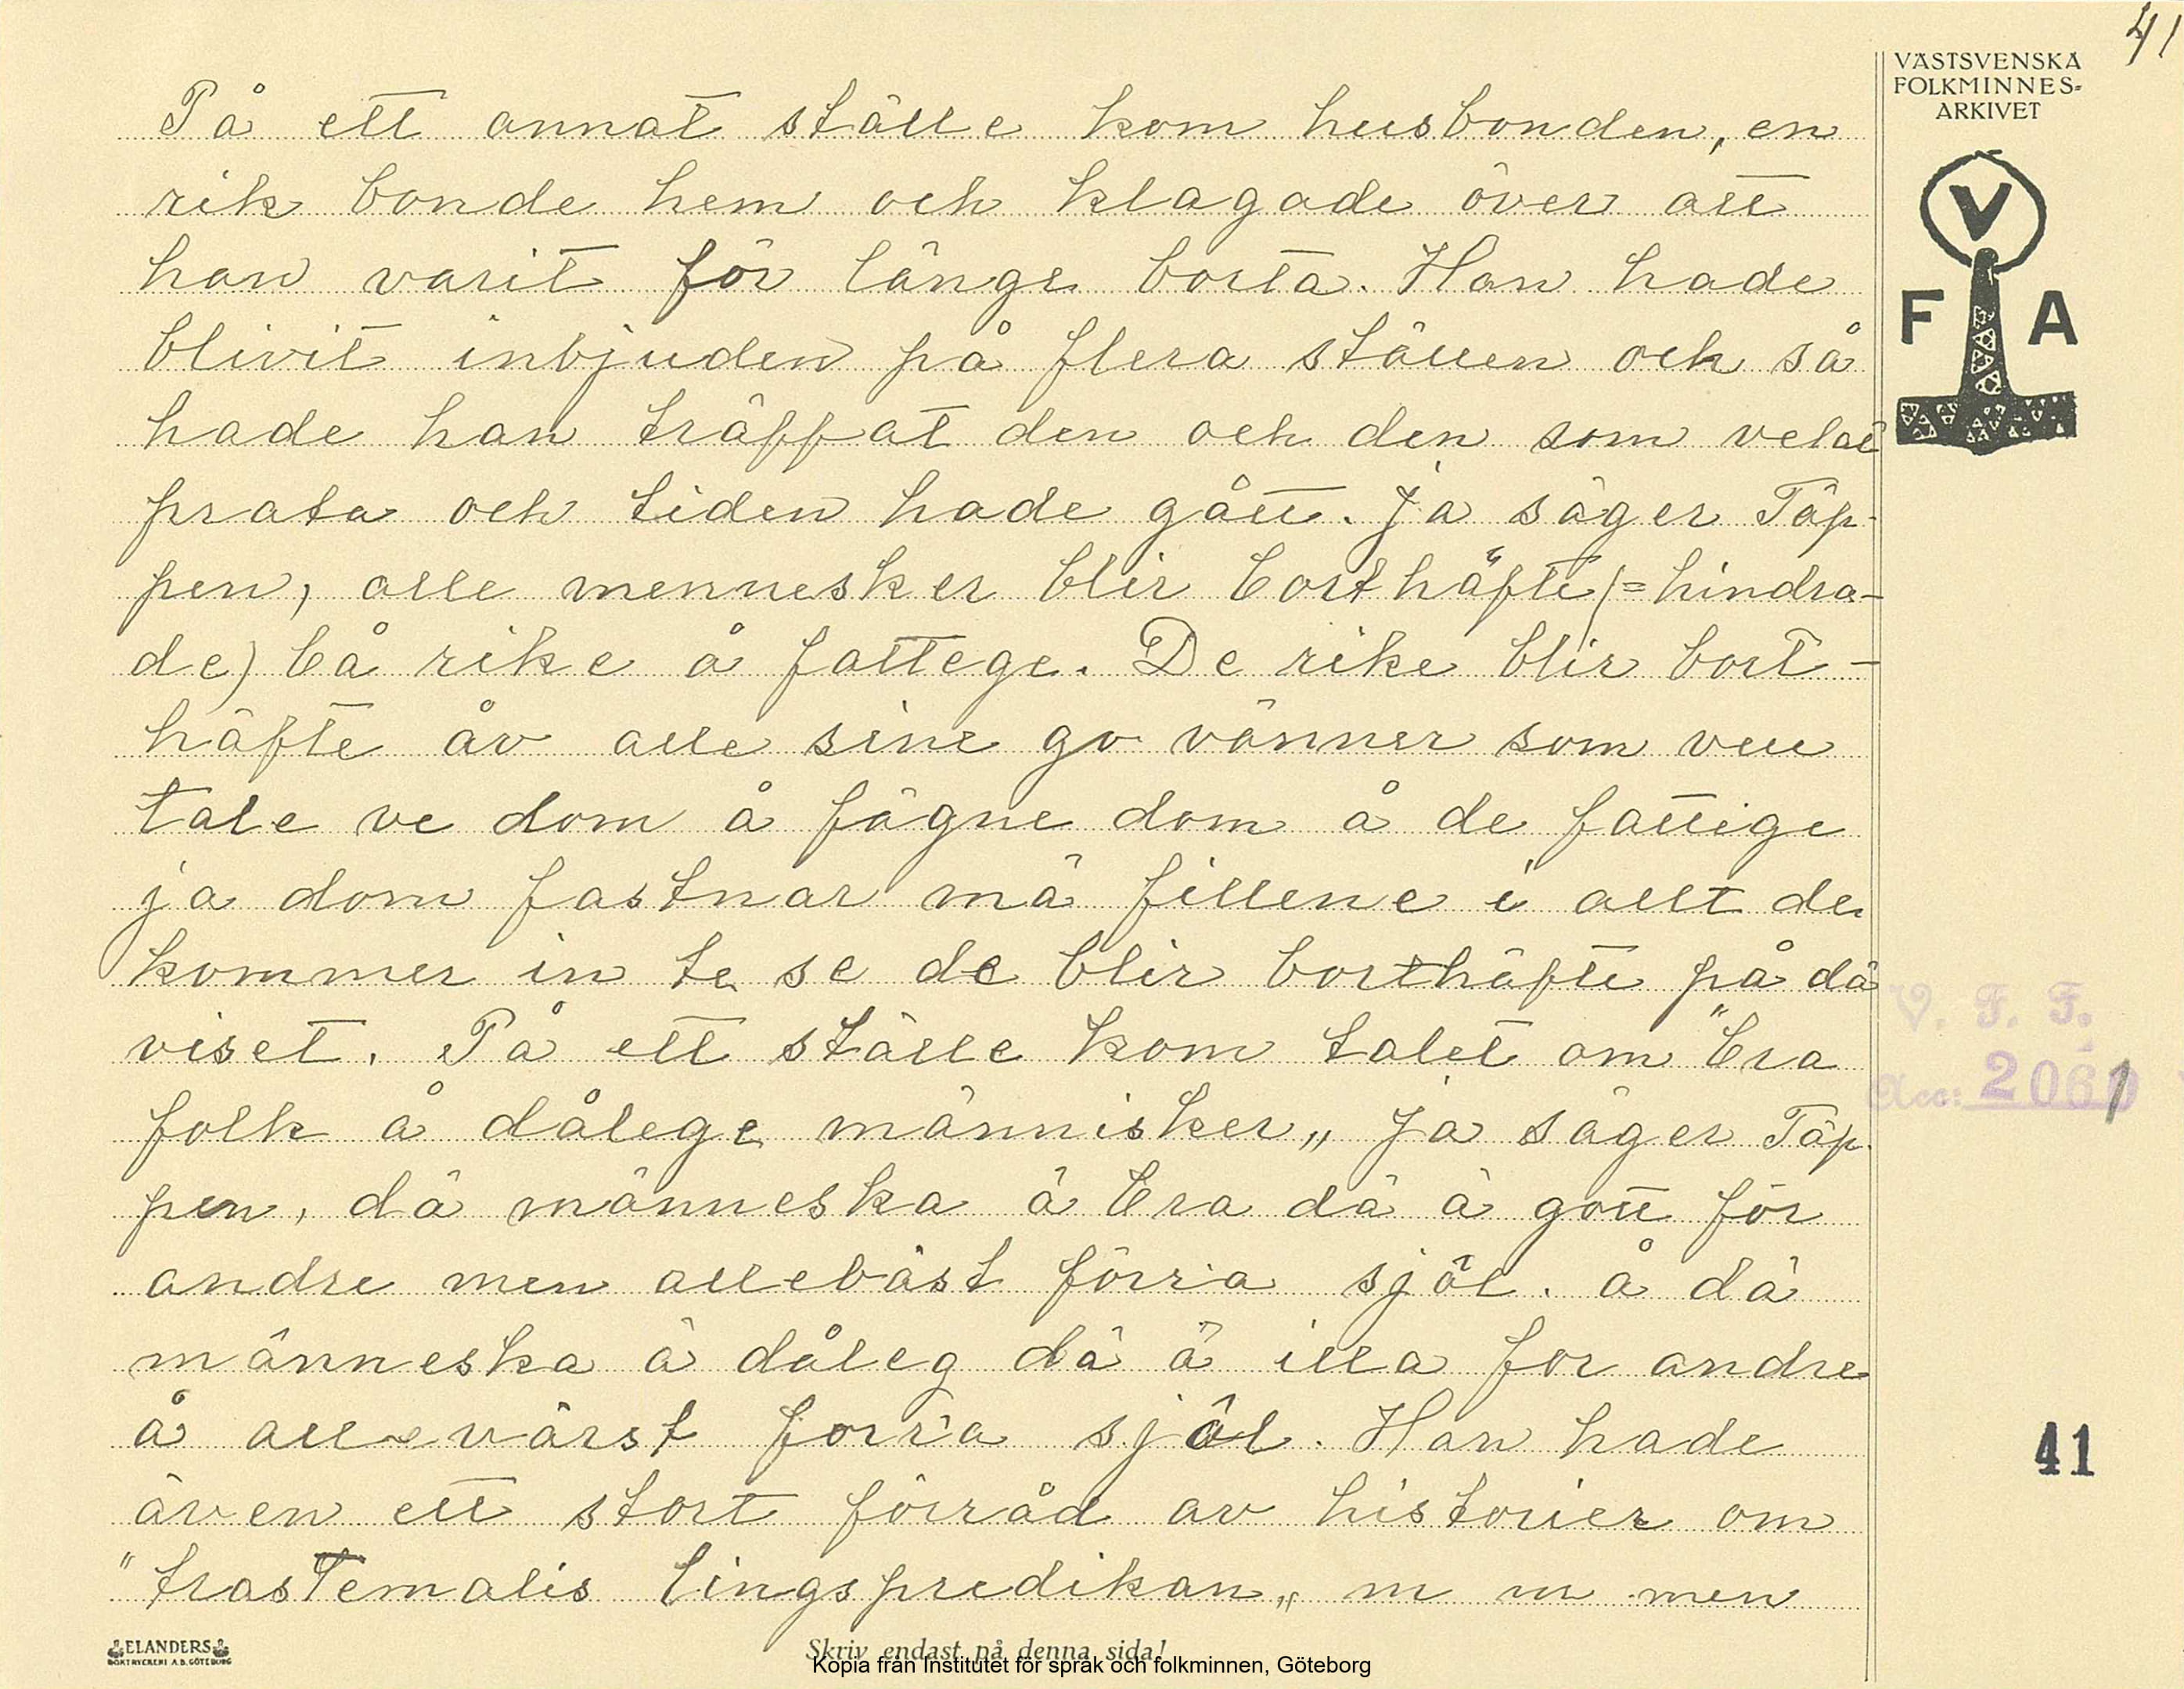 41
VÄSTSVENSKA
FOLKMINNES-
ARKIVET
V
F A
På ett annat ställe kom husbonden, en
rik bonde hem och klagade över att
han varit för länge borta. Han hade
blivit inbjuden på flera ställen och så
hade han träffat den och den som velat
prata och tiden hade gått. Ja säger Täp-
pen, alle mennesker blir borthäfte (= hindra-
de) bå rike å fattege. De rike blir bort-
häfte åv alle sine go vänner som vell
tale ve dom å fägne dom å de fattige
ja dom fastnar mä fillene i allt de
kommer in te se de blir borthäfte på dä
viset. På ett ställe kom talet om "bra
folk å dålege människer„ Ja säger Täp-
pen, dä människa ä bra dä ä gott för
andre men allebäst förr'a själ. å dä
människa ä dåleg dä ä illa for andre
å allevärst forr'a själ. Han hade
även ett stort förråd av historier om
"trastemalis lingspredikan„ m m men
V. F. F.
Acc: 2061
41
ELANDERS
BOKTRYCKERI A.B. GÖTEBORG
Skriv endast på denna sida!
Kopia från Institutet för språk och folkminnen, Göteborg